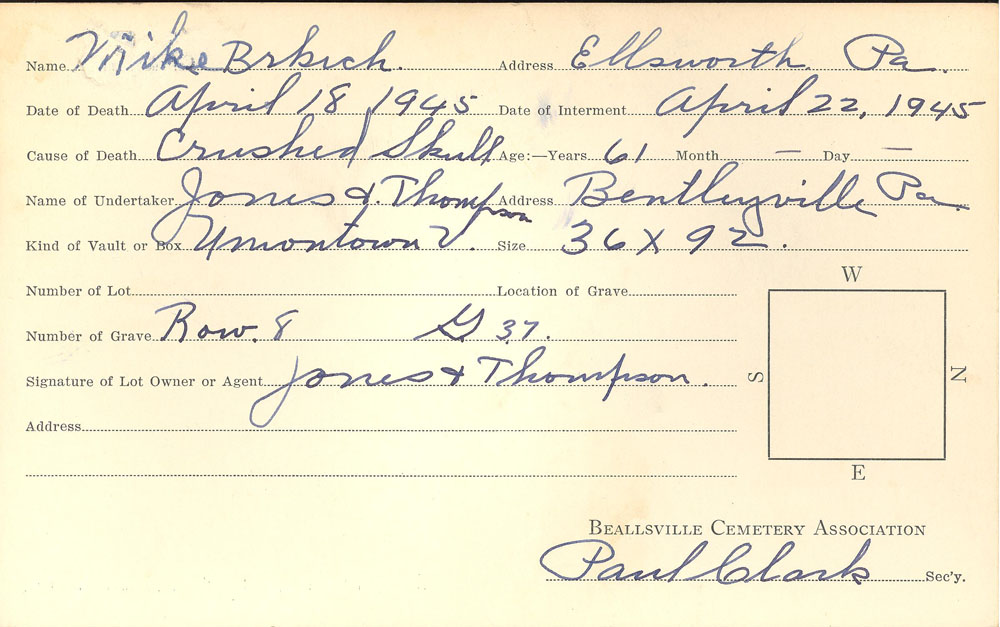 Name Mike Brkich. Address Ellsworth Pa.
Date of Death April 18 1945 Date of Interment April 22, 1945
Cause of Death Crushed Skull Age:—Years 61 Month — Day —
Name of Undertaker Jones & Thompson Address Bentleyville Pa.
Kind of Vault or Box Uniontown V. Size 36 X 92.
Number of Lot Location of Grave
W
Number of Grave Row. 8 G 37.
Signature of Lot Owner or Agent Jones & Thompson.
S N
Address
E
BEALLSVILLE CEMETERY ASSOCIATION
Paul Clark Sec'y.